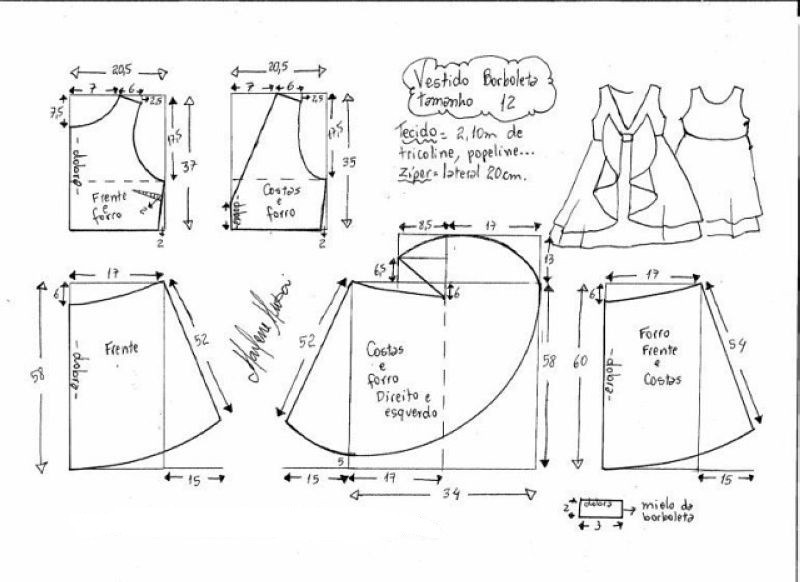 20,5
7
6
2,5
7,5
17,5
37
- dobra -
Frente
e
forro
2
2
20,5
7
6
2,5
17,5
35
dobra
Costas
e
forro
2
Vestido Borboleta
tamanho 12
Tecido = 2,10m de
tricoline, popeline...
Ziper = lateral 20cm.
17
6
58
- dobra -
Frente
52
15
8,5
17
6,5
13
6
52
Costas
e
forro
Direito e
esquerdo
58
5
15
17
34
17
6
60
- dobra -
Forro
Frente
e
Costas
54
15
2
dobra
3
miolo da
borboleta